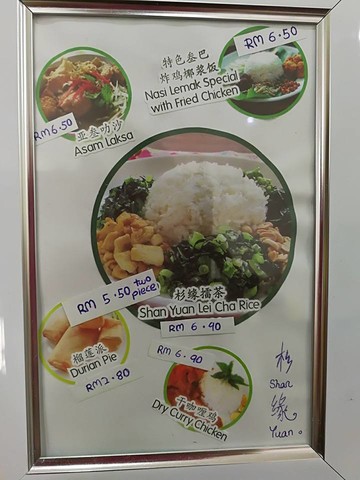 RM 6.50
特色叁巴
炸鸡椰浆饭
Nasi Lemak Special
with Fried Chicken
RM 6.50
亚叁叻沙
Asam Laksa
RM 5.50 two
piece
杉缘擂茶
Shan Yuan Lei Cha Rice
RM 6.90
榴莲派
Durian Pie
RM 2.80
RM 6.90
干咖喱鸡
Dry Curry Chicken
杉
Shan
缘
Yuan。